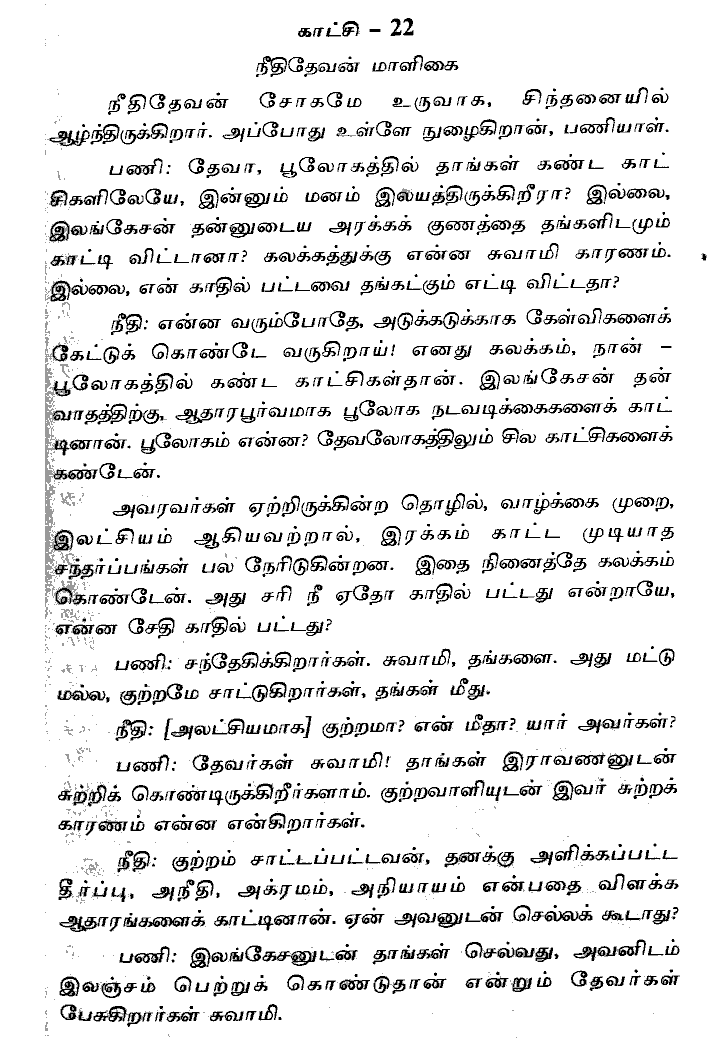 காட்சி – 22
நீதிதேவன் மாளிகை
நீதிதேவன் சோகமே உருவாக, சிந்தனையில்
ஆழ்ந்திருக்கிறார். அப்போது உள்ளே நுழைகிறான், பணியாள்.
பணி: தேவா, பூலோகத்தில் தாங்கள் கண்ட காட்
சிகளிலேயே, இன்னும் மனம் இலயத்திருக்கிறீரா? இல்லை,
இலங்கேசன் தன்னுடைய அரக்கக் குணத்தை தங்களிடமும்
காட்டி விட்டானா? கலக்கத்துக்கு என்ன சுவாமி காரணம்.
இல்லை, என் காதில் பட்டவை தங்கட்கும் எட்டி விட்டதா?
நீதி: என்ன வரும்போதே, அடுக்கடுக்காக கேள்விகளைக்
கேட்டுக் கொண்டே வருகிறாய்! எனது கலக்கம், நான் –
பூலோகத்தில் கண்ட காட்சிகள்தான். இலங்கேசன் தன்
வாதத்திற்கு, ஆதாரபூர்வமாக பூலோக நடவடிக்கைகளைக் காட்
டினான். பூலோகம் என்ன? தேவலோகத்திலும் சில காட்சிகளைக்
கண்டேன்.
அவரவர்கள் ஏற்றிருக்கின்ற தொழில், வாழ்க்கை முறை,
இலட்சியம் ஆகியவற்றால், இரக்கம் காட்ட முடியாத
சந்தர்ப்பங்கள் பல நேரிடுகின்றன. இதை நினைத்தே கலக்கம்
கொண்டேன். அது சரி நீ ஏதோ காதில் பட்டது என்றாயே,
என்ன சேதி காதில் பட்டது?
பணி: சந்தேகிக்கிறார்கள். சுவாமி, தங்களை. அது மட்டு
மல்ல, குற்றமே சாட்டுகிறார்கள், தங்கள் மீது.
நீதி: [அலட்சியமாக] குற்றமா? என் மீதா? யார் அவர்கள்?
பணி: தேவர்கள் சுவாமி! தாங்கள் இராவணனுடன்
சுற்றிக் கொண்டிருக்கிறீர்களாம். குற்றவாளியுடன் இவர் சுற்றக்
காரணம் என்ன என்கிறார்கள்.
நீதி: குற்றம் சாட்டப்பட்டவன், தனக்கு அளிக்கப்பட்ட
தீர்ப்பு, அநீதி, அக்ரமம், அநியாயம் என்பதை விளக்க
ஆதாரங்களைக் காட்டினான். ஏன் அவனுடன் செல்லக் கூடாது?
பணி: இலங்கேசனுடன் தாங்கள் செல்வது, அவனிடம்
இலஞ்சம் பெற்றுக் கொண்டுதான் என்றும் தேவர்கள்
பேசுகிறார்கள் சுவாமி.